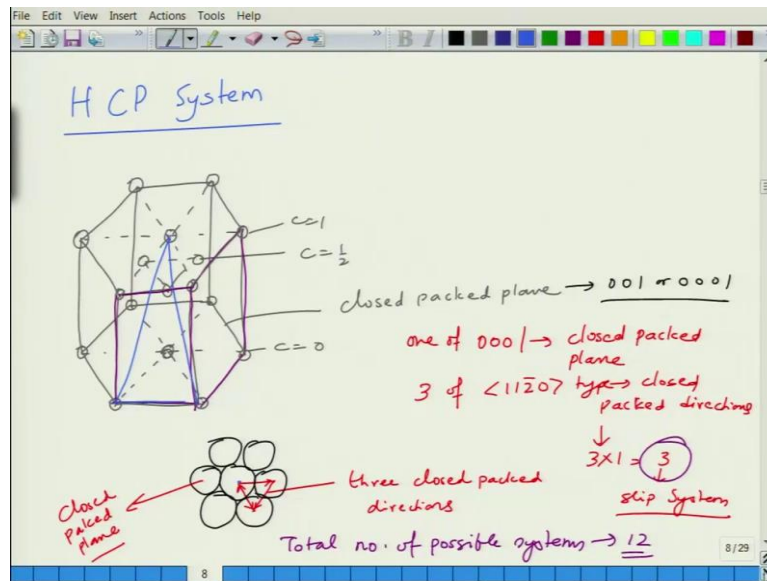 File Edit View Insert Actions Tools Help
B I
HCP System
c=1
c=1/2
closed packed plane → 001 or 0001
c=0
one of 0001 → closed packed
plane
3 of <112̄0> type → closed
packed directions
3×1 = 3
slip System
closed
packed
plane
three closed packed
directions
Total no. of possible systems → 12
8/29
8